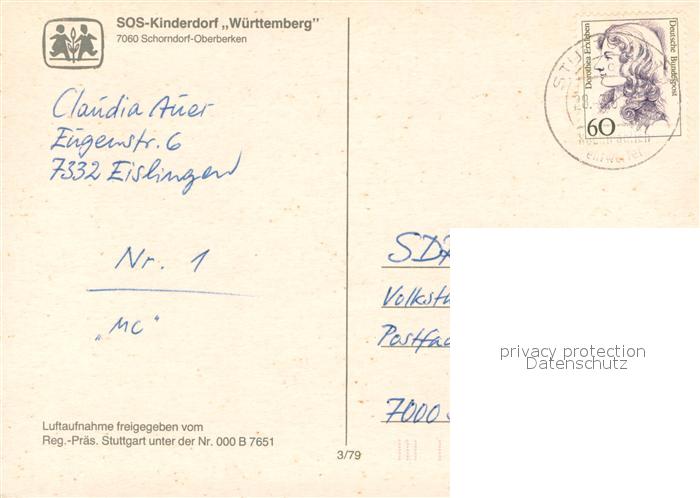 SOS-Kinderdorf „Württemberg"
7060 Schorndorf-Oberberken
Deutsche Bundespost
Dorothea Erxleben
60
Claudia Auer
Eugenstr. 6
7332 Eislingen
Nr. 1
„MC"
Postfac
7000
privacy protection
Datenschutz
Luftaufnahme freigegeben vom
Reg.-Präs. Stuttgart unter der Nr. 000 B 7651
3/79